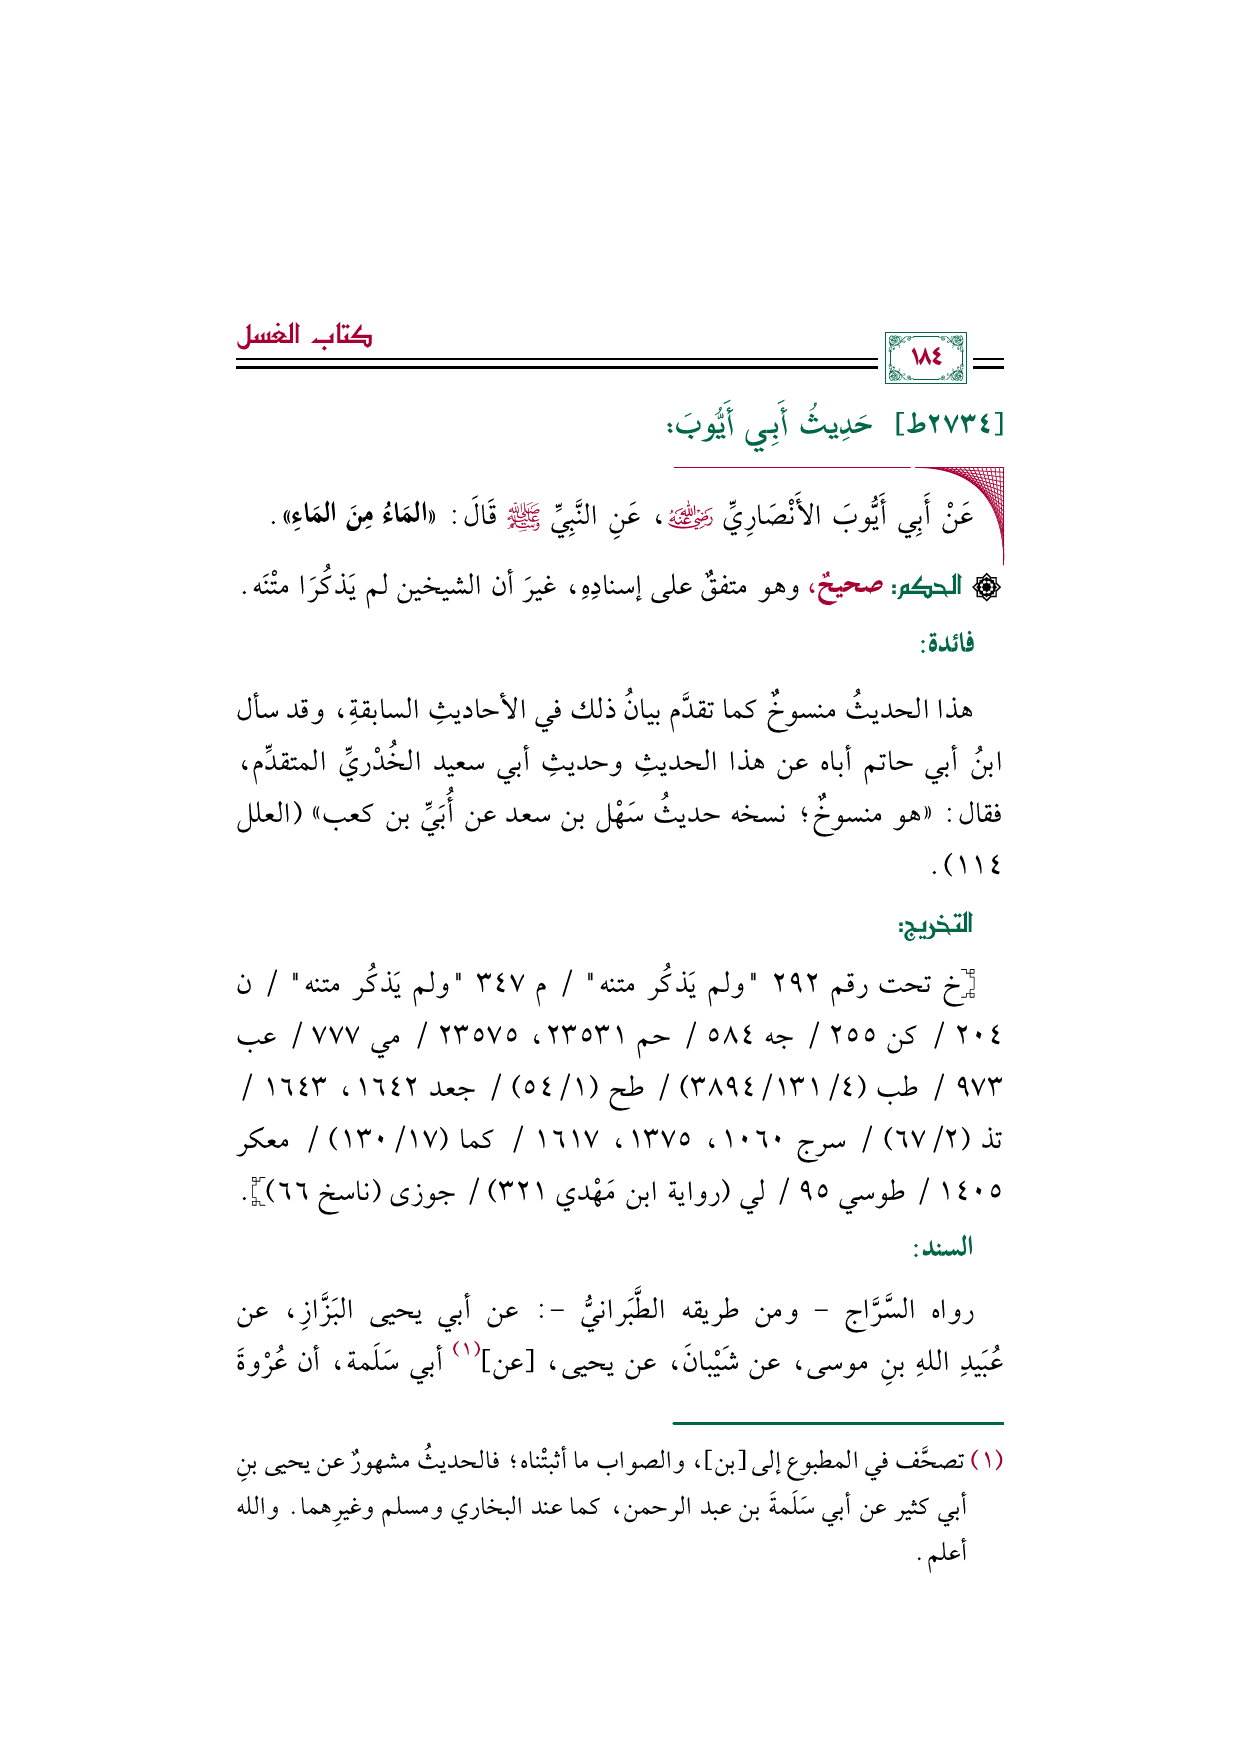 كتاب الغسل
١٨٤
[٢٧٣٤ط] حَدِيثُ أَبِي أَيُّوبَ:
عَنْ أَبِي أَيُّوبَ الأَنْصَارِيِّ رَضِيَ اللَّهُ عَنْهُ، عَنِ النَّبِيِّ ﷺ قَالَ: «المَاءُ مِنَ المَاءِ».
الحكم: صحيحٌ، وهو متفقٌ على إسنادِهِ، غيرَ أن الشيخين لم يَذكُرَا متْنَه.
فائدة:
هذا الحديثُ منسوخٌ كما تقدَّم بيانُ ذلك في الأحاديثِ السابقةِ، وقد سأل
ابنُ أبي حاتم أباه عن هذا الحديثِ وحديثِ أبي سعيد الخُدْريِّ المتقدِّم،
فقال: «هو منسوخٌ؛ نسخه حديثُ سَهْل بن سعد عن أُبَيِّ بن كعب» (العلل
١١٤).
التخريج:
[خ تحت رقم ٢٩٢ "ولم يَذكُر متنه" / م ٣٤٧ "ولم يَذكُر متنه" / ن
٢٠٤ / كن ٢٥٥ / جه ٥٨٤ / حم ٢٣٥٣١، ٢٣٥٧٥ / مي ٧٧٧ / عب
٩٧٣ / طب (٤/ ١٣١/ ٣٨٩٤) / طح (١/ ٥٤) / جعد ١٦٤٢، ١٦٤٣ /
تذ (٢/ ٦٧) / سرج ١٠٦٠، ١٣٧٥، ١٦١٧ / كما (١٧/ ١٣٠) / معكر
١٤٠٥ / طوسي ٩٥ / لي (رواية ابن مَهْدي ٣٢١) / جوزى (ناسخ ٦٦)].
السند:
رواه السَّرَّاج - ومن طريقه الطَّبَرانيُّ -: عن أبي يحيى البَزَّازِ، عن
عُبَيدِ اللهِ بنِ موسى، عن شَيْبانَ، عن يحيى، [عن](١) أبي سَلَمة، أن عُرْوةَ
(١) تصحَّف في المطبوع إلى [بن]، والصواب ما أثبتْناه؛ فالحديثُ مشهورٌ عن يحيى بنِ
أبي كثير عن أبي سَلَمةَ بن عبد الرحمن، كما عند البخاري ومسلم وغيرِهما. والله
أعلم.